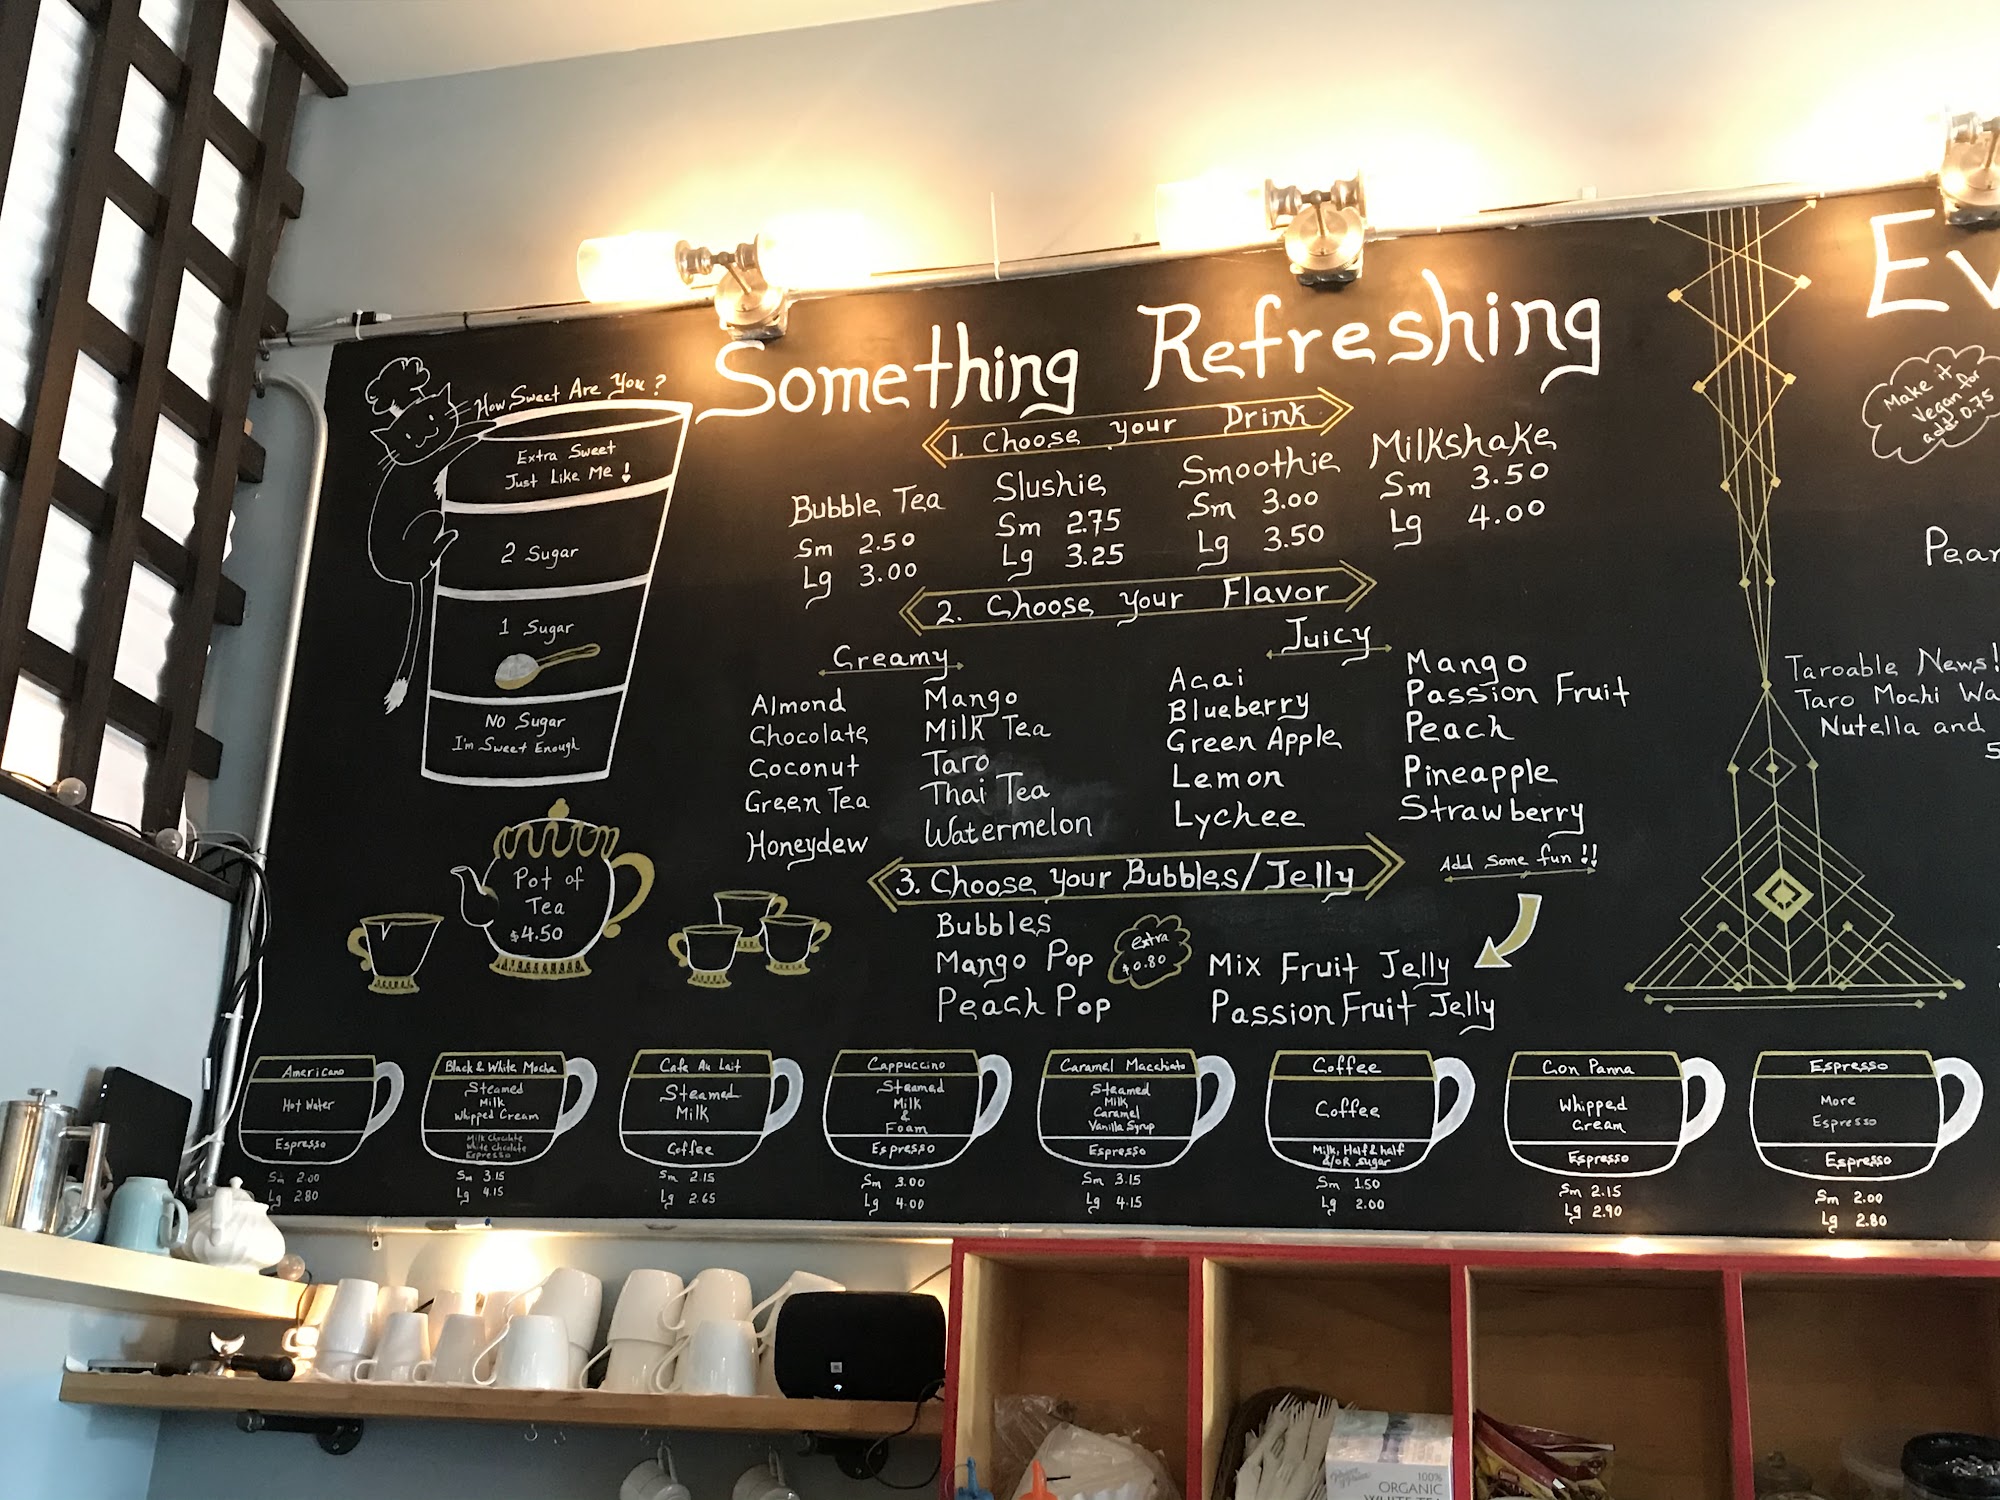 How Sweet Are You?
Extra Sweet
Just Like Me!
2 Sugar
1 Sugar
No Sugar
I'm Sweet Enough
Pot of
Tea
$4.50
Something Refreshing
1. Choose your Drink
Bubble Tea
Sm 2.50
Lg 3.00
Slushie
Sm 2.75
Lg 3.25
Smoothie
Sm 3.00
Lg 3.50
Milkshake
Sm 3.50
Lg 4.00
2. Choose your Flavor
Creamy
Almond
Chocolate
Coconut
Green Tea
Honeydew
Mango
Milk Tea
Taro
Thai Tea
Watermelon
Juicy
Acai
Blueberry
Green Apple
Lemon
Lychee
Mango
Passion Fruit
Peach
Pineapple
Strawberry
3. Choose your Bubbles/Jelly
Add some fun!!
Bubbles
Mango Pop
Peach Pop
extra
$0.80
Mix Fruit Jelly
Passion Fruit Jelly
Ev
Make it
Vegan for
add. 0.75
Pear
Taroable News!
Taro Mochi Wa
Nutella and
5
Americano
Hot Water
Espresso
Sm 2.00
Lg 2.80
Black & White Mocha
Steamed
Milk
Whipped Cream
Milk Chocolate
White Chocolate
Espresso
Sm 3.15
Lg 4.15
Cafe Au Lait
Steamed
Milk
Coffee
Sm 2.15
Lg 2.65
Cappuccino
Steamed
Milk
&
Foam
Espresso
Sm 3.00
Lg 4.00
Caramel Macchiato
Steamed
Milk
Caramel
Vanilla Syrup
Espresso
Sm 3.15
Lg 4.15
Coffee
Coffee
Milk, Half & half
&/OR sugar
Sm 1.50
Lg 2.00
Con Panna
Whipped
Cream
Espresso
Sm 2.15
Lg 2.90
Espresso
More
Espresso
Espresso
Sm 2.00
Lg 2.80
JBL
100%
ORGANIC
WHITE TEA